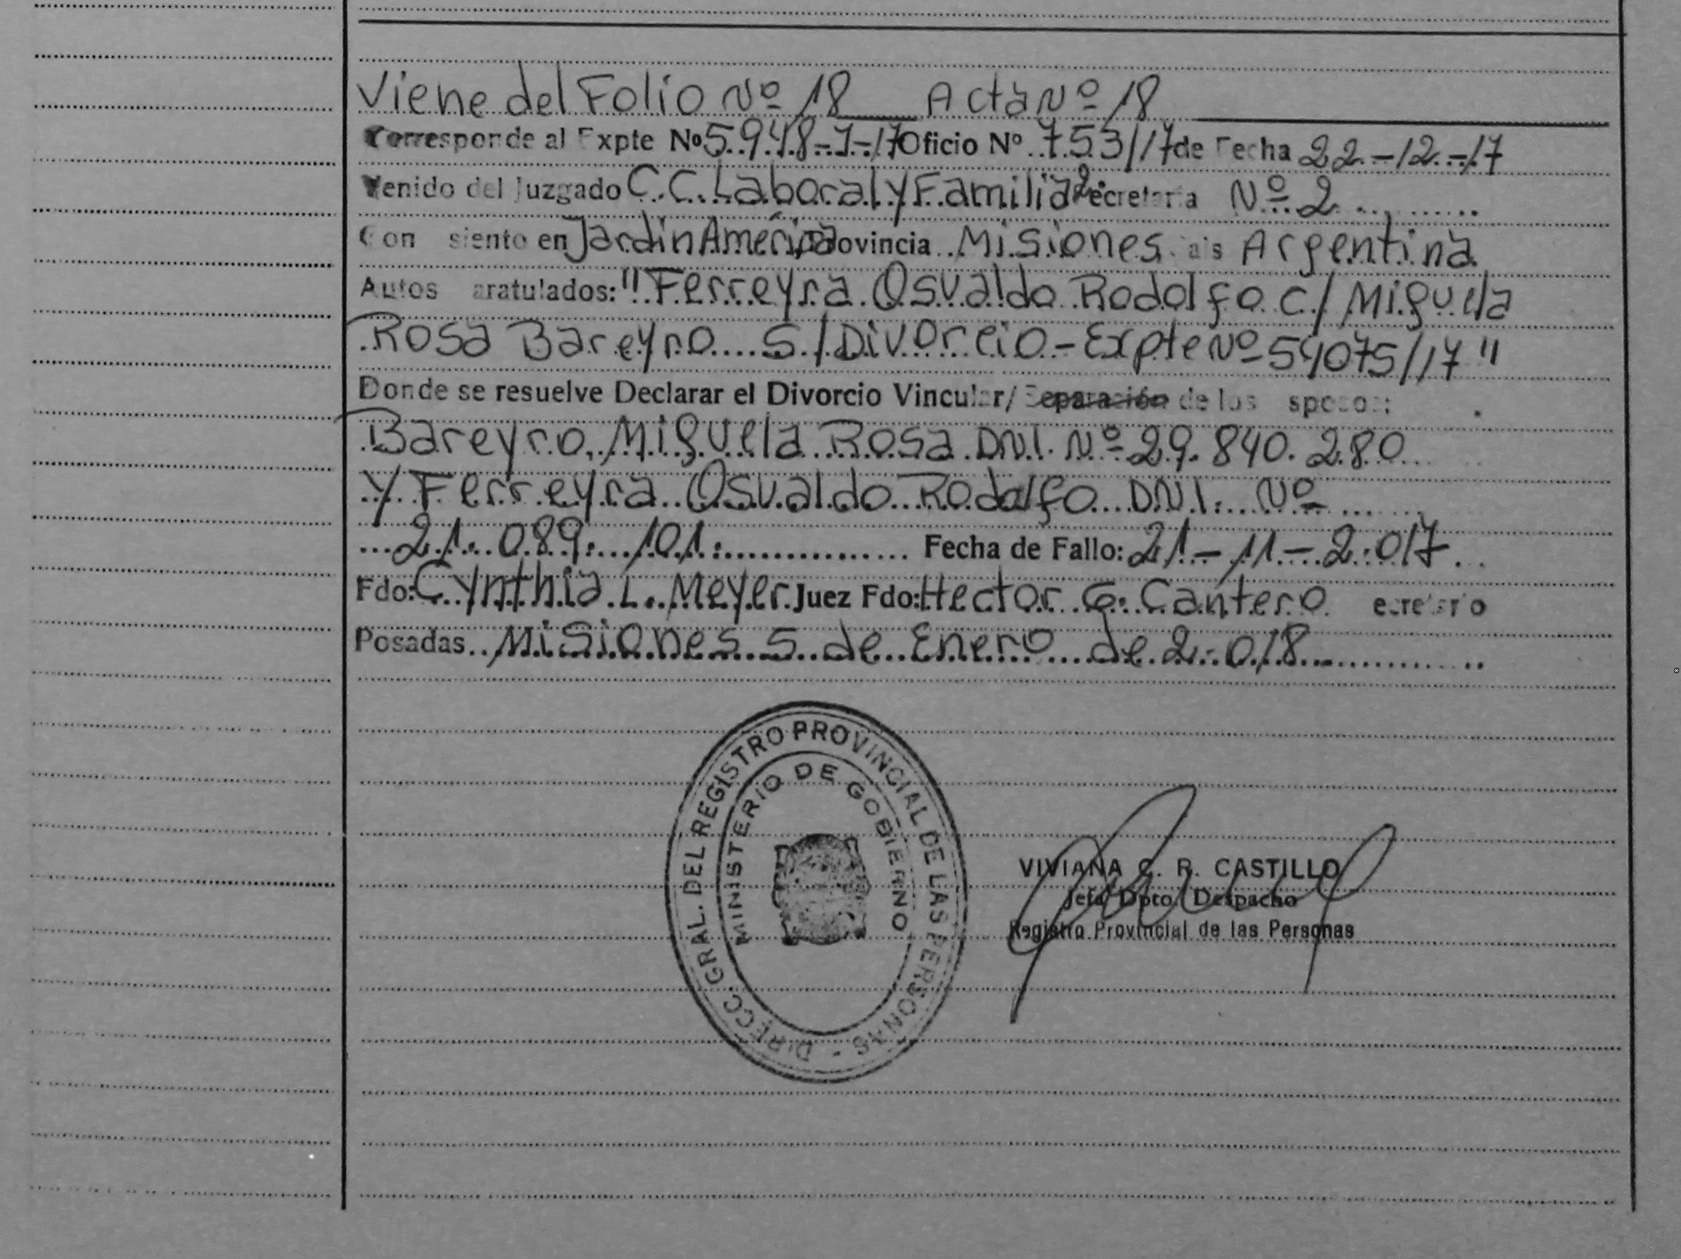 Viene del Folio Nº 18 Acta Nº 18
Corresponde al Expte Nº 5.948-J-17 Oficio Nº 753/17 de Fecha 22-12-17
Venido del Juzgado C.C. Laboral y Familia 2 Secretaria Nº 2
Con siento en Jardin América Provincia Misiones ais Argentina
Autos aratulados: "Ferreyra Osvaldo Rodolfo C/ Miguela
Rosa Bareyro S/Divorcio - Expte Nº 54075/17"
Donde se resuelve Declarar el Divorcio Vincular/ Separación de los sposos:
Bareyro, Miguela Rosa DNI. Nº 29.840.280
Y Ferreyra Osvaldo Rodolfo DNI. Nº
21.089.101. Fecha de Fallo: 21-11-2.017
Fdo: Cynthia L. Meyer Juez Fdo: Hector G. Cantero ecretario
Posadas Misiones 5 de Enero de 2.018
DIRECC. GRAL. DEL REGISTRO PROVINCIAL DE LAS PERSONAS -
MINISTERIO DE GOBIERNO
VIVIANA C. R. CASTILLO
Jefa Dpto Despacho
Registro Provincial de las Personas